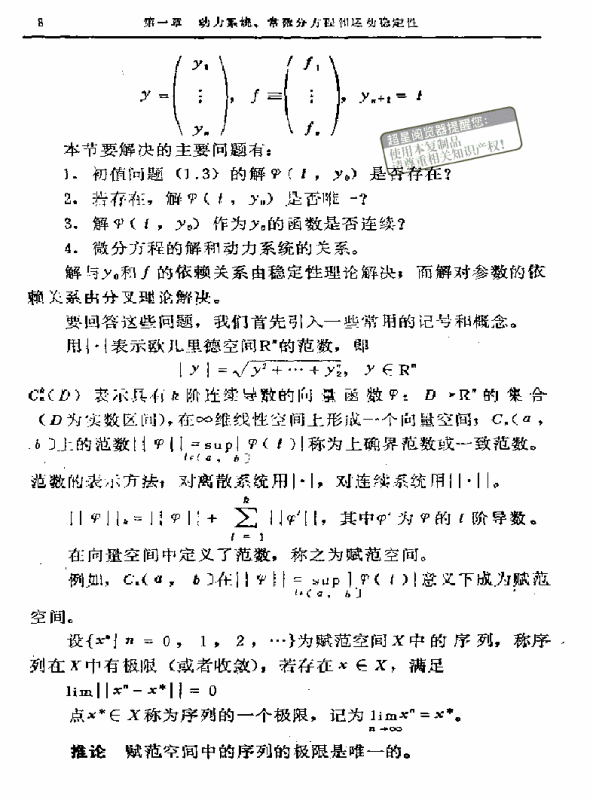 8 第一章 动力系统、常微分方程和运动稳定性
y = ( y₁ ⋮ yₙ ), f = ( f₁ ⋮ fₙ ), yₙ₊₁ = t
超星阅览器提醒您:
使用本复制品
请尊重相关知识产权!
本节要解决的主要问题有:
1. 初值问题 (1.3) 的解φ(t, y₀) 是否存在?
2. 若存在,解φ(t, y₀) 是否唯一?
3. 解φ(t, y₀) 作为y₀的函数是否连续?
4. 微分方程的解和动力系统的关系。
解与y₀和f的依赖关系由稳定性理论解决;而解对参数的依
赖关系由分叉理论解决。
要回答这些问题,我们首先引入一些常用的记号和概念。
用|·|表示欧几里德空间Rⁿ的范数,即
|y| = √y² + ⋯ + y²ₙ, y ∈ Rⁿ
(D) 表示具有k阶连续导数的向量函数φ: D→Rⁿ的集合
(D为实数区间),在∞维线性空间上形成一个向量空间;Cₙ(a,
b〕上的范数||φ|| = sup|φ(t)|称为上确界范数或一致范数。
t∈(a, b〕
范数的表示方法:对离散系统用|·|,对连续系统用||·||。
||φ||ₖ = ||φ|| + ∑ ||φⁱ||, 其中φⁱ为φ的i阶导数。
k
i = 1
在向量空间中定义了范数,称之为赋范空间。
例如,Cₙ(a, b〕在||φ|| = sup|φ(t)|意义下成为赋范
t∈(a, b〕
空间。
设{xⁿ| n = 0, 1, 2, ⋯}为赋范空间X中的序列,称序
列在X中有极限(或者收敛),若存在x ∈ X,满足
lim||xⁿ - x*|| = 0
点x* ∈ X称为序列的一个极限,记为limxⁿ = x*。
n→∞
推论 赋范空间中的序列的极限是唯一的。